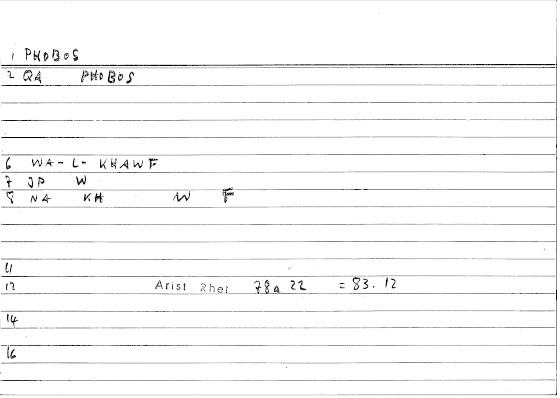 1 PHOBOS
2 QA PHOBOS
6 WA-L-KHAWF
7 JP W
8 NA KH W F
11
12 Arist Rhet 78a 22 = 83.12
14
16